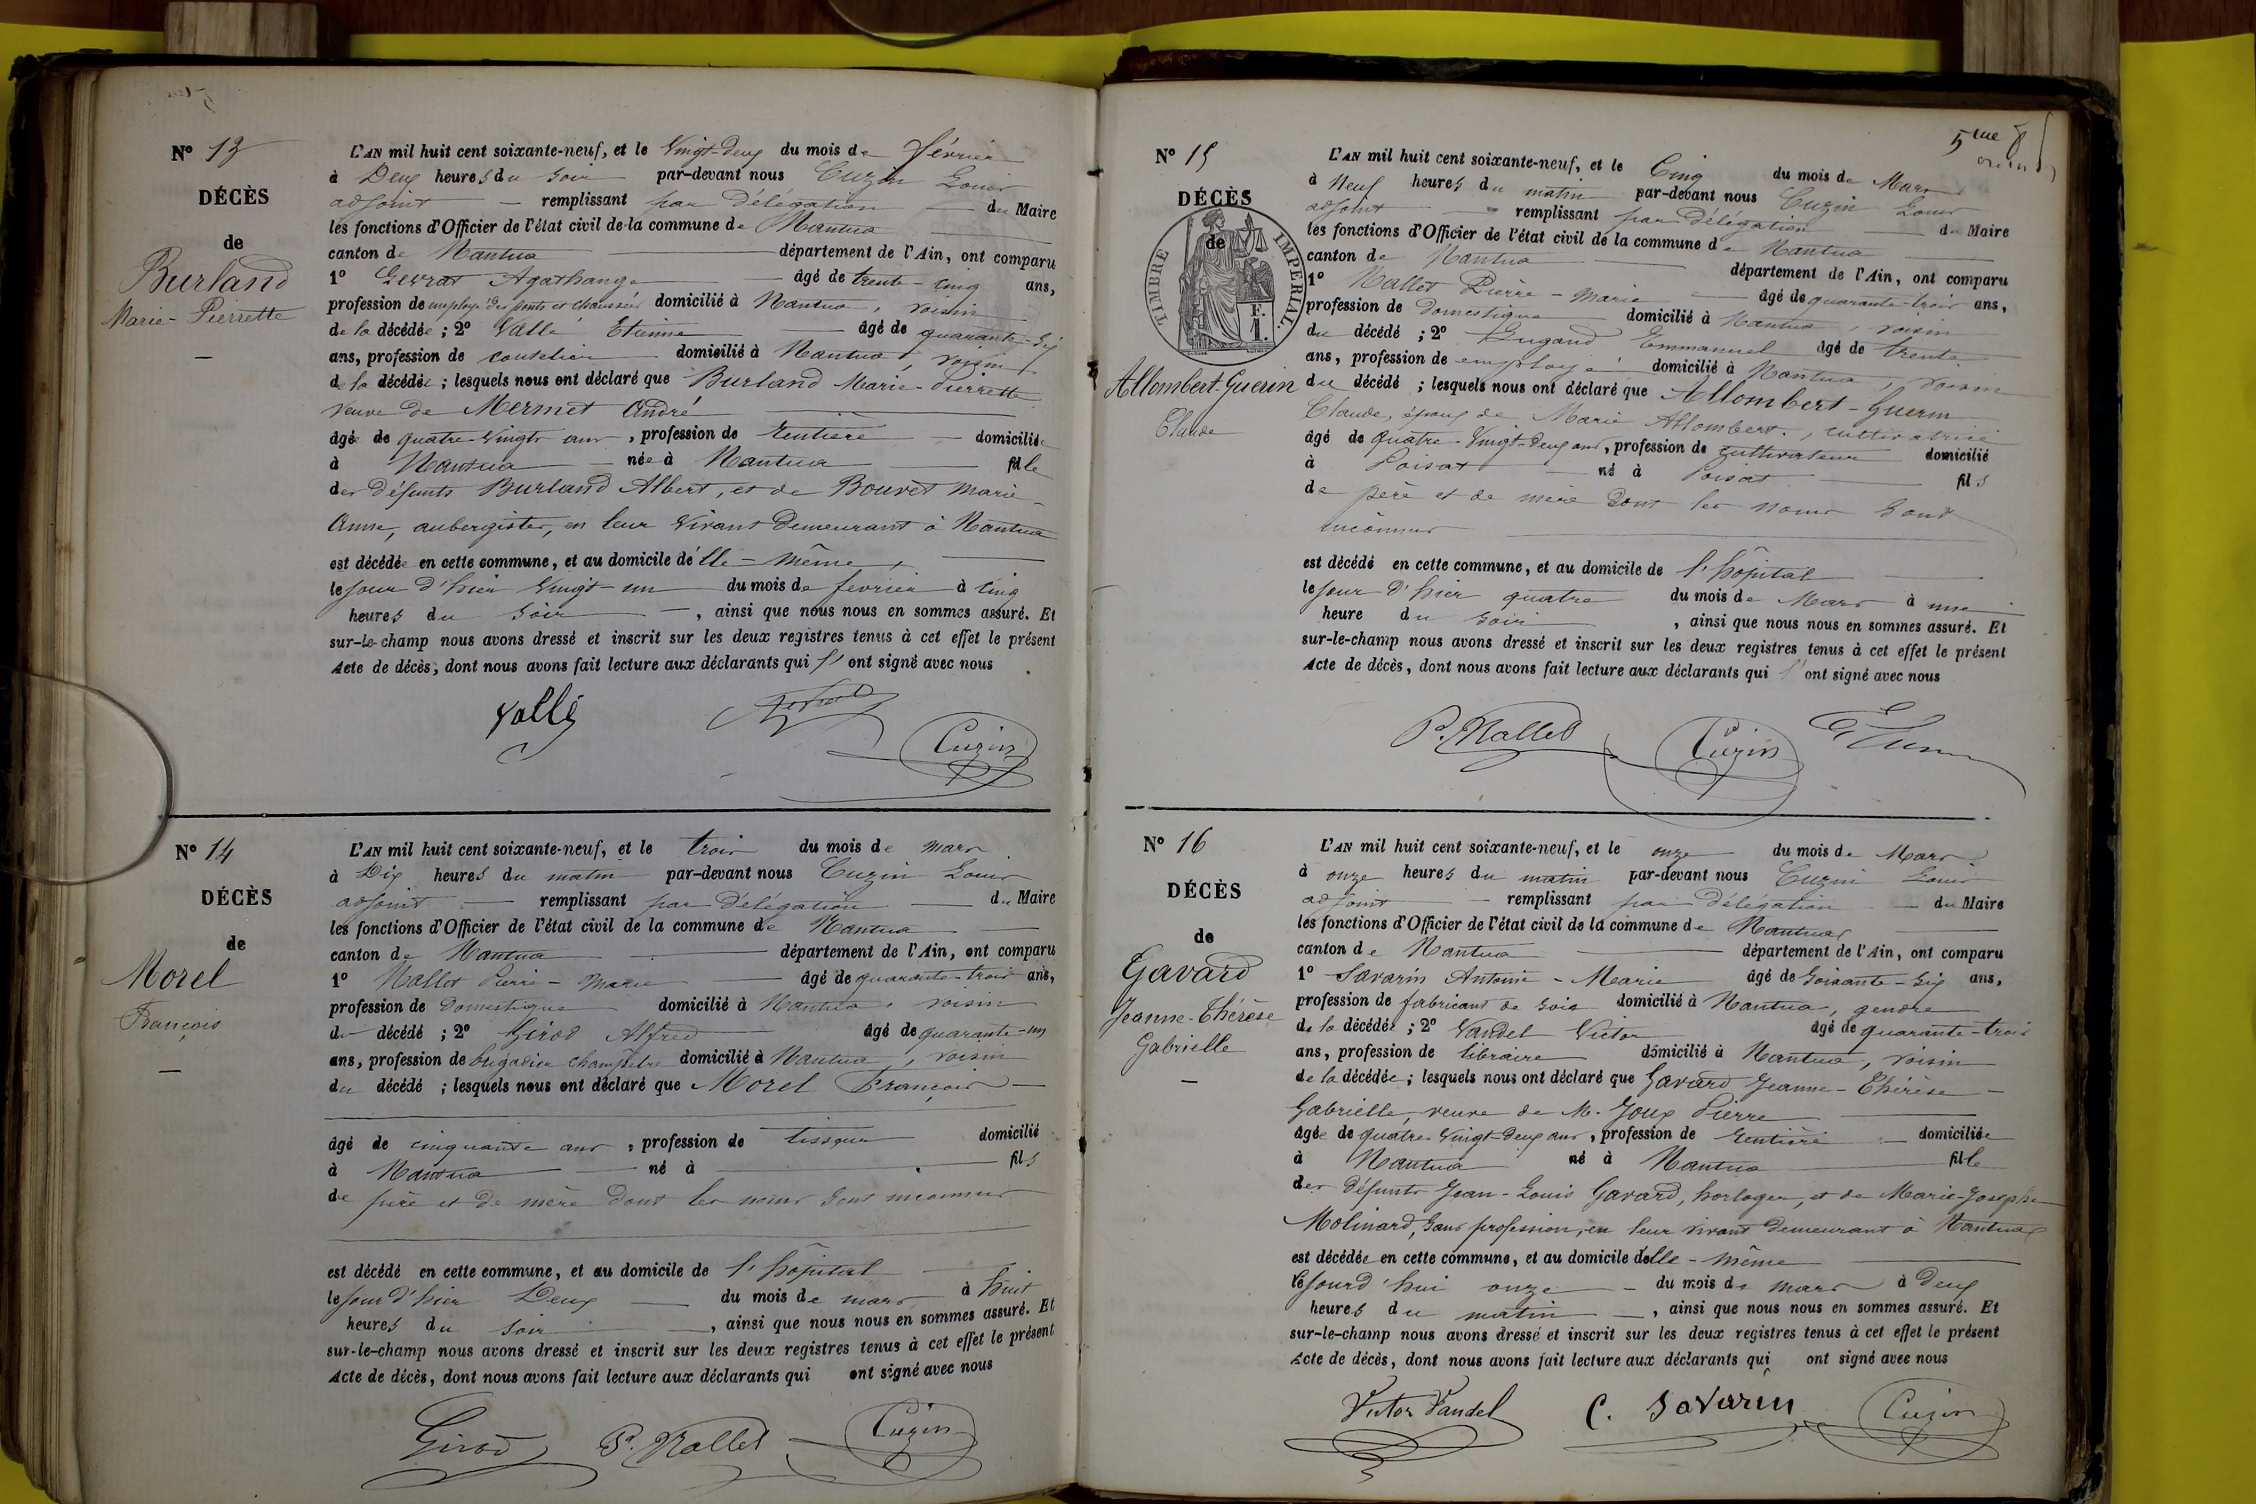 N° 13
DÉCÈS
de
Burland
Marie-Pierrette
L'AN mil huit cent soixante-neuf, et le Vingt-deux du mois de février
à Deux heures du soir par-devant nous Cuzin Louis
adjoint remplissant par Délégation du Maire
les fonctions d'Officier de l'état civil de la commune de Nantua
canton de Nantua département de l'Ain, ont comparu
1° Gevrat Agathange âgé de trente-cinq ans,
profession de employé des ponts et chaussées domicilié à Nantua, voisin
de la décédée ; 2° Vallé Etienne âgé de quarante-six
ans, profession de coutelier domicilié à Nantua, voisin
de la décédée ; lesquels nous ont déclaré que Burland Marie-Pierrette
veuve de Mermet André
âgée de quatre-vingts ans, profession de rentière domiciliée
à Nantua née à Nantua fille
des défunts Burland Albert, et de Bouvet Marie-
Anne, aubergistes, en leur vivant demeurant à Nantua
est décédée en cette commune, et au domicile d'elle-même,
le jour d'hier vingt-un du mois de février à cinq
heures du soir, ainsi que nous nous en sommes assuré. Et
sur-le-champ nous avons dressé et inscrit sur les deux registres tenus à cet effet le présent
Acte de décès, dont nous avons fait lecture aux déclarants qui l'ont signé avec nous
Vallé
Cuzin
N° 14
DÉCÈS
de
Morel
François
L'AN mil huit cent soixante-neuf, et le trois du mois de mars
à Dix heures du matin par-devant nous Cuzin Louis
adjoint remplissant par Délégation du Maire
les fonctions d'Officier de l'état civil de la commune de Nantua
canton de Nantua département de l'Ain, ont comparu
1° Nallet Pierre-Marie âgé de quarante-trois ans,
profession de domestique domicilié à Nantua, voisin
du décédé ; 2° Girod Alfred âgé de quarante-un
ans, profession de brigadier champêtre domicilié à Nantua, voisin
du décédé ; lesquels nous ont déclaré que Morel François
âgé de cinquante ans, profession de tisseur domicilié
à Nantua né à fils
de père et de mère dont les noms sont inconnus
est décédé en cette commune, et au domicile de l'hôpital
le jour d'hier Deux du mois de mars à huit
heures du soir, ainsi que nous nous en sommes assuré. Et
sur-le-champ nous avons dressé et inscrit sur les deux registres tenus à cet effet le présent
Acte de décès, dont nous avons fait lecture aux déclarants qui ont signé avec nous
Girod P. Nallet Cuzin
5me
N° 15
DÉCÈS
de
TIMBRE IMPÉRIAL
F. 1.
Allombert-Guerin
Claude
L'AN mil huit cent soixante-neuf, et le Cinq du mois de Mars
à Neuf heures du matin par-devant nous Cuzin Louis
adjoint remplissant par Délégation du Maire
les fonctions d'Officier de l'état civil de la commune de Nantua
canton de Nantua département de l'Ain, ont comparu
1° Nallet Pierre-Marie âgé de quarante-trois ans,
profession de Domestique domicilié à Nantua, voisin
du décédé ; 2° Gugand Emmanuel âgé de trente
ans, profession de employé domicilié à Nantua, voisin
du décédé ; lesquels nous ont déclaré que Allombert-Guerin
Claude, époux de Marie Allombert, cultivatrice
âgé de quatre-vingt-deux ans, profession de cultivateur domicilié
à Poisat né à Poisat fils
de père et de mère dont les noms sont
inconnus
est décédé en cette commune, et au domicile de l'hôpital
le jour d'hier quatre du mois de Mars à une
heure du soir, ainsi que nous nous en sommes assuré. Et
sur-le-champ nous avons dressé et inscrit sur les deux registres tenus à cet effet le présent
Acte de décès, dont nous avons fait lecture aux déclarants qui l'ont signé avec nous
P. Nallet Cuzin
N° 16
DÉCÈS
de
Gavard
Jeanne-Thérèse
Gabrielle
L'AN mil huit cent soixante-neuf, et le onze du mois de Mars
à onze heures du matin par-devant nous Cuzin Louis
adjoint remplissant par Délégation du Maire
les fonctions d'Officier de l'état civil de la commune de Nantua
canton de Nantua département de l'Ain, ont comparu
1° Savarin Antoine-Marie âgé de soixante-six ans,
profession de fabricant de soie domicilié à Nantua, gendre
de la décédée ; 2° Vandel Victor âgé de quarante-trois
ans, profession de libraire domicilié à Nantua, voisin
de la décédée ; lesquels nous ont déclaré que Gavard Jeanne-Thérèse-
Gabrielle, veuve de M. Joux Pierre
âgée de quatre-vingt-deux ans, profession de rentière domiciliée
à Nantua né à Nantua fille
des défunts Jean-Louis Gavard, horloger, et de Marie-Josephe
Molinard, sans profession, en leur vivant demeurant à Nantua
est décédée en cette commune, et au domicile d'elle-même
le jourd'hui onze du mois de mars à Deux
heures du matin, ainsi que nous nous en sommes assuré. Et
sur-le-champ nous avons dressé et inscrit sur les deux registres tenus à cet effet le présent
Acte de décès, dont nous avons fait lecture aux déclarants qui ont signé avec nous
Victor Vandel C. Savarin Cuzin